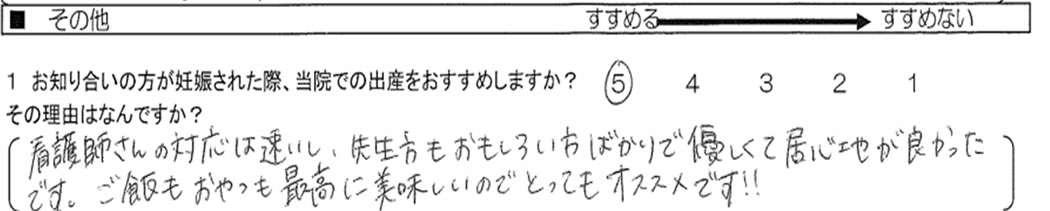 ■ その他 すすめる すすめない
1 お知り合いの方が妊娠された際、当院での出産をおすすめしますか？ 5 4 3 2 1
その理由はなんですか？
看護師さんの対応は速いし、先生方もおもしろい方ばかりで優しくて居心地が良かった
です。ご飯もおやつも最高に美味しいのでとってもオススメです!!